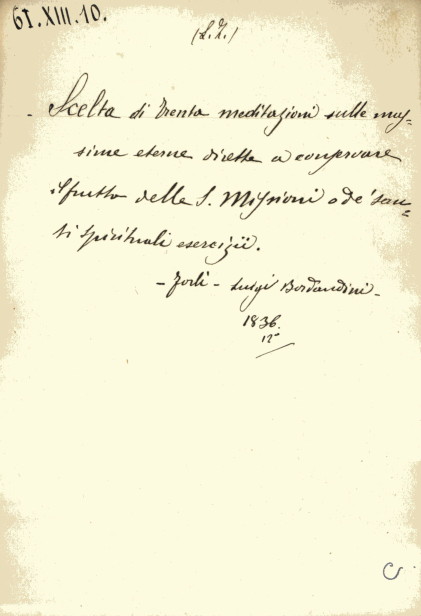 61.XIII.10.
(L.I.)
- Scelta di trenta meditazioni sulle mas=
sime eterne dirette a conservare
il frutto delle S. Missioni o de' san=
ti spirituali esercizii.
- Forlì - Luigi Bordandini -
1836.
12°
C